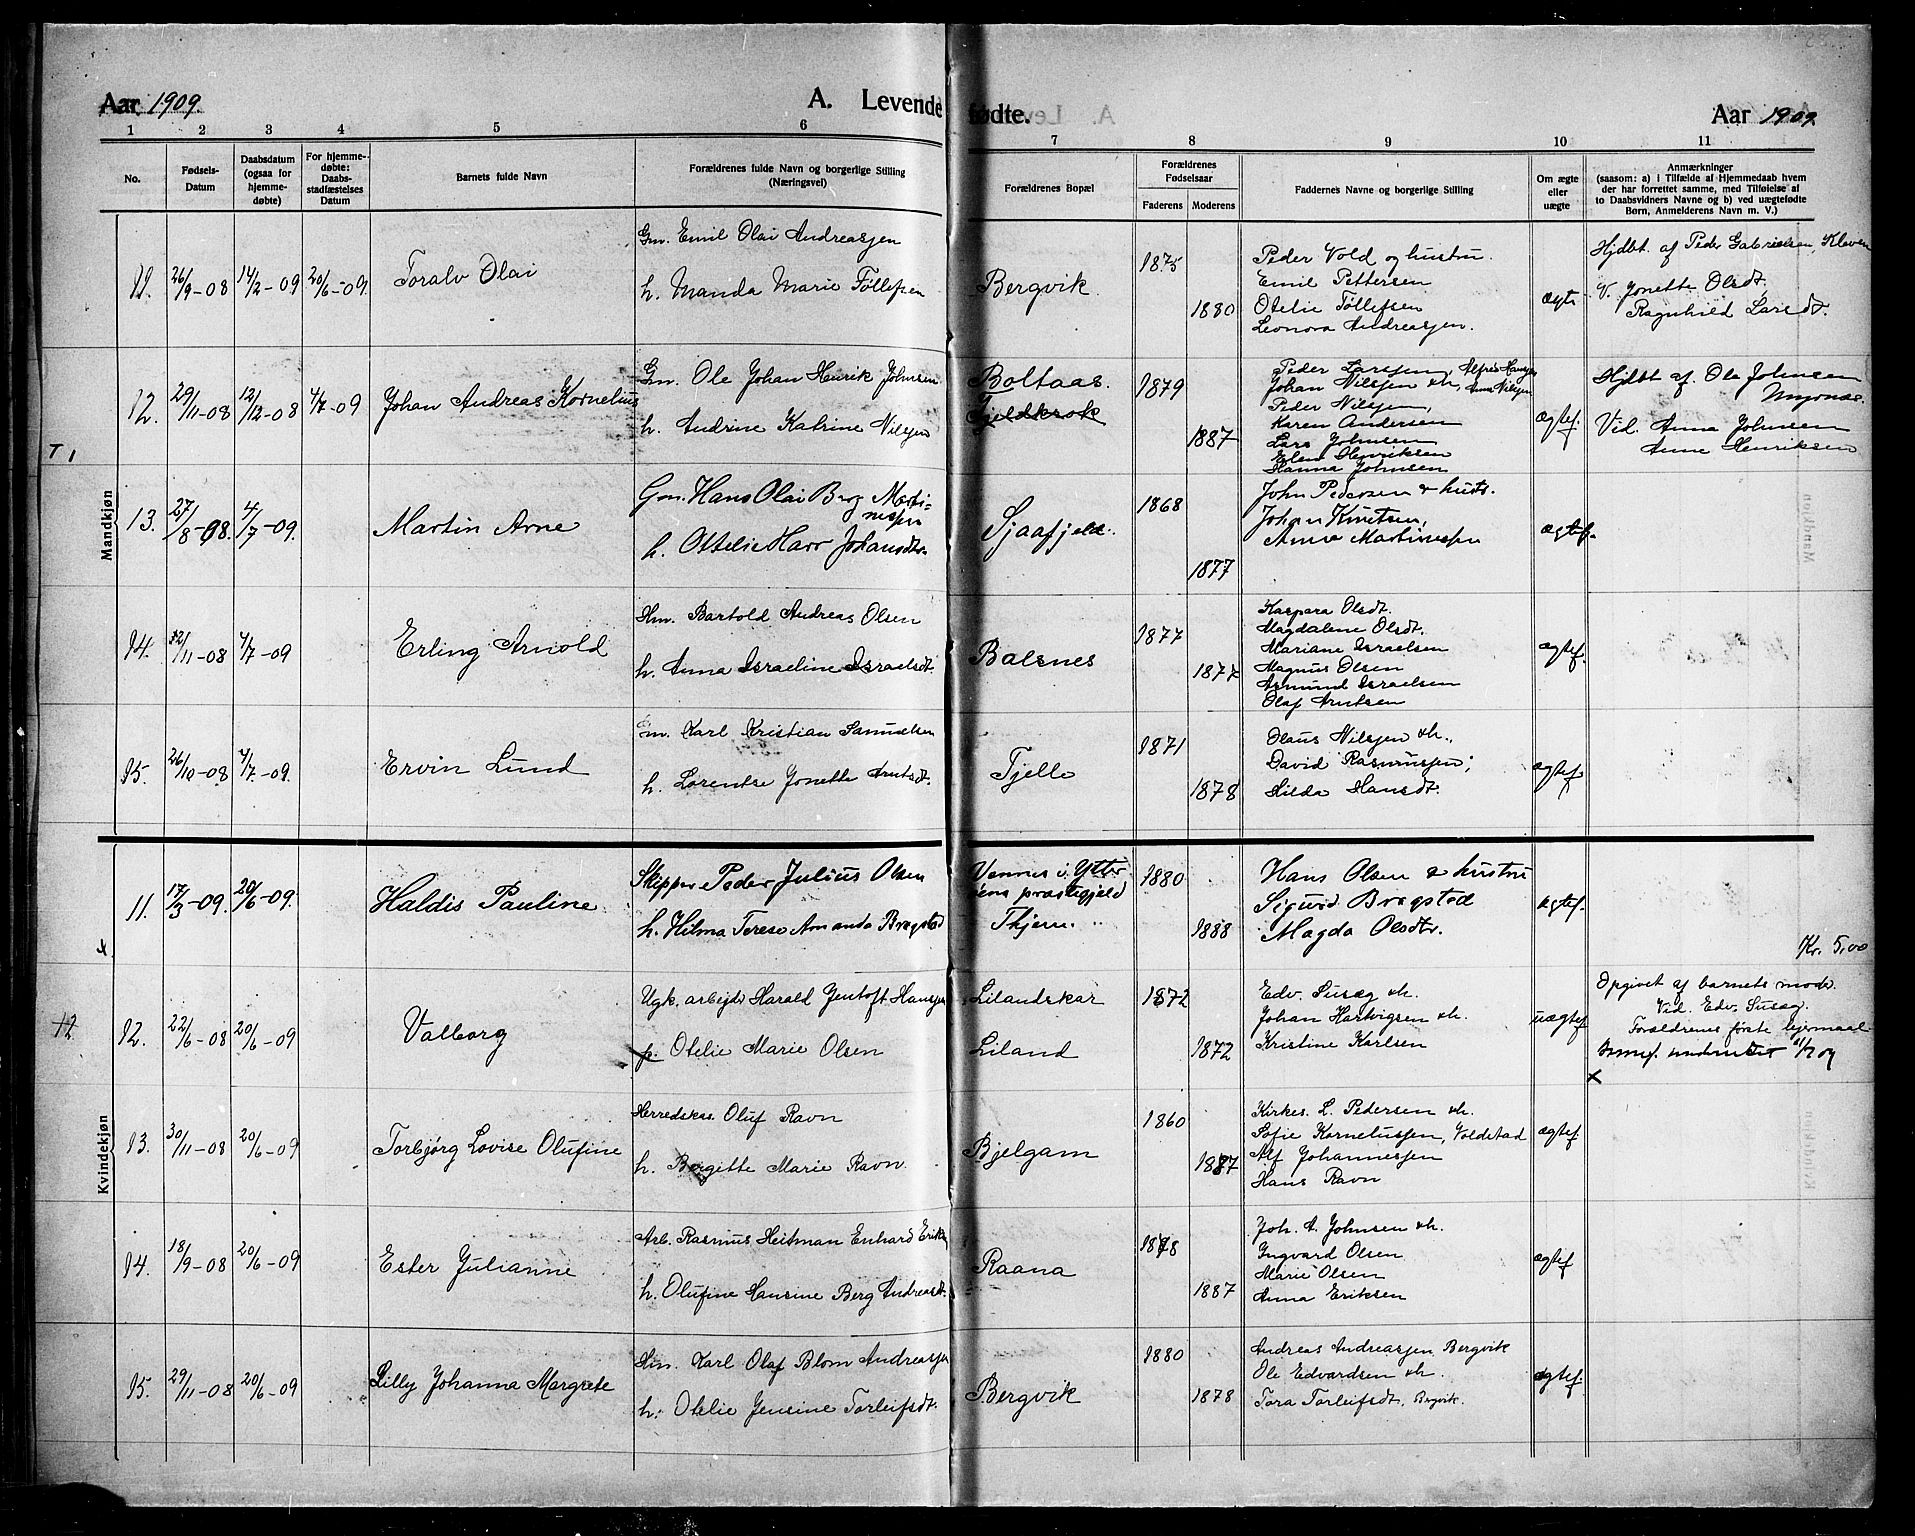 Aar 1909.
A. Levende
fødte.
Aar 1909.
1 2 3 4 5 6 7 8 9 10 11
No.
Fødsels-
Datum
Daabsdatum
(ogsaa for
hjemme-
døbte)
For hjemme-
døbte:
Daabs-
stadfæstelses
Datum
Barnets fulde Navn
Forældrenes fulde Navn og borgerlige Stilling
(Næringsvei)
Forældrenes Bopæl
Forældrenes
Fødselsaar
Faderens Moderens
Faddernes Navne og borgerlige Stilling
Om ægte
eller
uægte
Anmærkninger
(saasom: a) i Tilfælde af Hjemmedaab hvem
der har forrettet samme, med Tilføielse af
to Daabsvidners Navne og b) ved uægtefødte
Børn, Anmelderens Navn m. V.)
Mandkjøn
11. 26/9-08 14/2-09 20/6-09 Toralv Olai
Gm. Emil Olai Andreasjen
h. Manda Marie Tøllefsen
Bergvik
1875
1880
Peder Vold og hustru
Emil Pettersen
Otelie Tøllefsen
Leonora Andreasjen.
ægte
Hjdbt. af Peder Gabrielsen, Kleven
V. Jonette Olsdt.
Ragnhild Larsdt.
12. 29/11-08 12/12-08 4/7-09 Johan Andreas Kornelius
Gm. Ole Johan Henrik Johnsen
h. Andrine Katrine Nilsjen
Boltaas.
Fjeldkrok
1879
1887
Peder Larsjen, Alfred Hansjen
Johan Nilsjen &h, Anna Nilsjen
Peder Nilsjen,
Karen Andersen
Lars Johnsen
Elen Henriksen
Hanna Johnsen
ægtef.
Hjdbt. af. Ole Johnsen
Myrnes.
Vid. Anna Johnsen
Anne Henriksen
T 1
13. 27/8-08. 4/7-09. Martin Arne
Gm. Hans Olai Berg Marti-
nesjen
h. Ottelie Harr Johansdtr.
Sjaafjeld.
1868
1877
John Pedersen & hustr.
Johan Knutsen,
Anna Martinesjen
ægtef.
14. 12/11-08 4/7-09 Erling Arnold
Hm. Bartold Andreas Olsen
h. Anna Israeline Israelsdt.
Balsnes
1877
1877
Kaspara Olsdt.
Magdalene Olsdt.
Mariane Israelsen
Magnus Olsen
Asmund Israelsen
Olaf Arntsen
ægtef.
15. 26/10-08 4/7-09. Ervin Lund
Gm. Karl Kristian Samuelsen
h. Lorentse Jonette Arntsdt.
Tjelle
1871
1878
Olaus Nilsjen &h.,
David Rasmussen;
Hilda Hansdt.
ægtef.
Kvindekjøn
11. 17/3-09. 20/6-09. Haldis Pauline
Skipper Peder Julius Olsen
h. Hilma Terese Amanda Bragstad
Vennes i Ytter
øens præstegjeld
Thjem.
1880
1888
Hans Olsen & hustru
Sigurd Bragstad
Magda Olsdtr.
ægtef.
Kr. 5,00
x
12. 22/6-08 20/6-09 Valborg
Ugk. arbejdr Harald Jentoft Hansjen
p. Otelie Marie Olsen
Lilandskar
Liland
1872
1872
Edv. Susæg &h.
Johan Hartvigsen &h.
Kristine Karlsen
uægtef
Opgivet af barnets moder.
Vid. Edv. Susæg.
Forældrenes første lejermaal
x
12
13. 30/11-08 20/6-09 Torbjørg Lovise Olufine
Herredskas. Oluf Ravn
h. Bergitte Marie Ravn.
Bjelgam
1860
1887
Kirkes. L. Pedersen &h.
Sofie Korneliussjen, Voldstad
Alf Johannessjen
Hans Ravn
ægtef
14. 18/9-08 20/6-09 Ester Julianne
Arb. Rasmus Heitman Enhard Eriks
h. Olufine Hansine Berg Andreasdt.
Raana
1878
1887
Joh. A. Johnsen &h.
Ingvard Olsen
Marie Olsen
Anna Eriksen
ægtef
15. 29/11-08 20/6-09 Lilly Johanna Margrete
Hm. Karl Olaf Blom Andreasjen
h. Otelie Jensine Torleifsdt.
Bergvik
1880
1878
Andreas Andreasjen Bergvik
Ole Edvardsen &h.
Tora Torleifsdt, Bergvik.
ægtef.